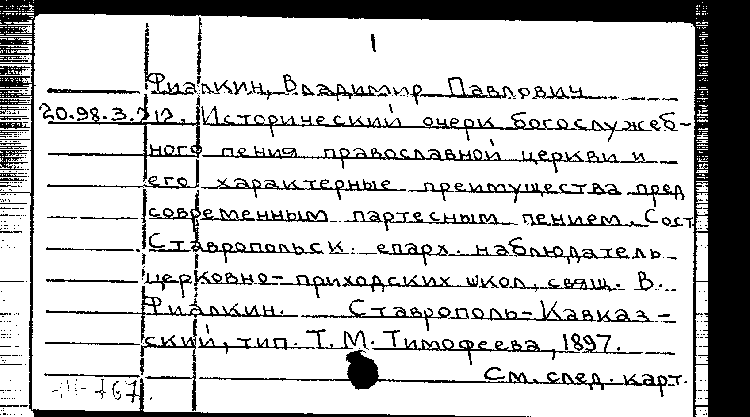 1
Фиалкин, Владимир Павлович
20.98.3.212. Исторический очерк богослужеб-
ного пения православной церкви и
его характерные преимущества пред
современным партесным пением. Сост.
Ставропольск. епарх. наблюдатель
церковно-приходских школ, свящ. В.
Фиалкин. Ставрополь-Кавказ-
ский, тип. Т. М. Тимофеева, 1897.
См. след. карт.